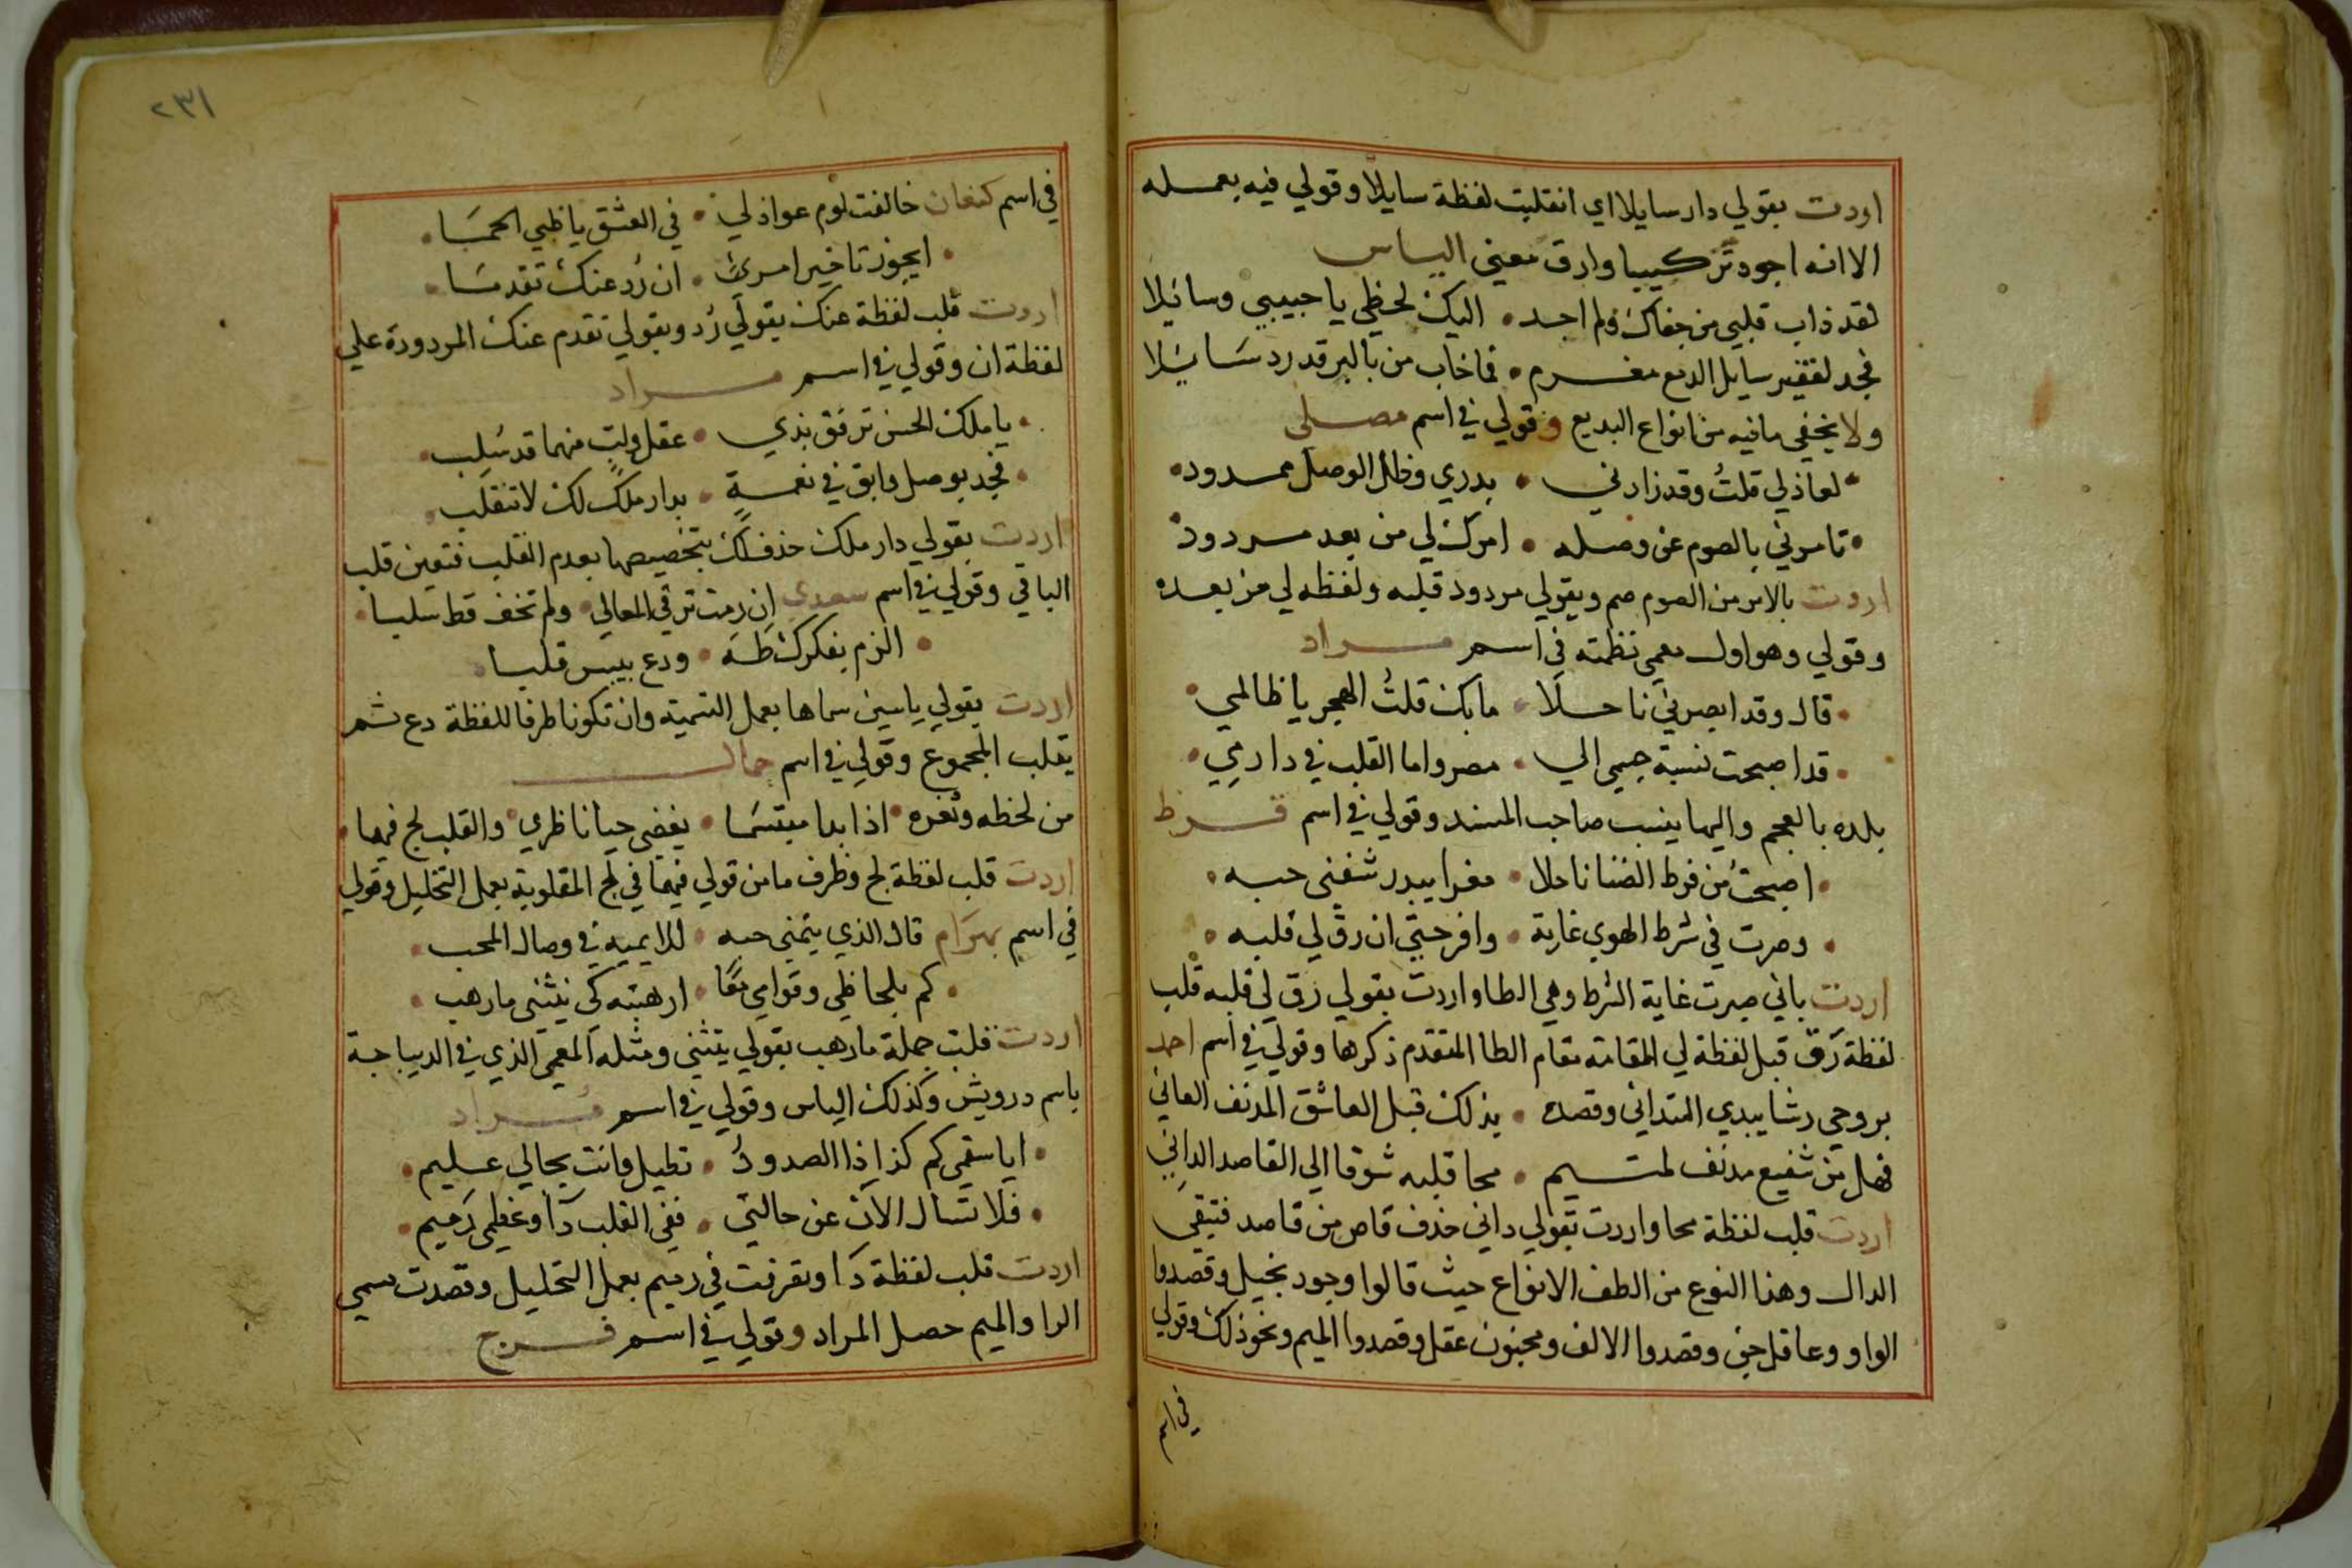 اردت بقولي دار سايلا اي انقلبت لفظة سايلا وقولي فيه بعمله
الا انه اجود تركيبا وارق معني الياس
لقد ذاب قلبي من جفاك ولم اجد • اليك لحظي يا حبيبي وسائلا
فجد لفقير سايل الدمع مغرم • فما خاب من بالبر قد رد سَائلا
ولا يخفي ما فيه من انواع البديع وقولي في اسم مصلي
• لعاذلي قلتُ وقد زارني • بدري وظل الوصل ممدود •
• تامرني بالصوم عن وصله • امرك لي من بعد مردود
اردت بالامر من الصوم صم وبقولي مردود قلبه ولفظه لي من بعده
وقولي وهو اول معمي نظمته في اسم مراد
• قال وقد ابصرني ناحلا • ما بك قلتُ الهجر يا ظالمي •
• قد اصبحت نسبة جسمي الي • مصر واما القلب في دارمي •
بلده بالعجم واليها ينسب صاحب المسند وقولي في اسم قرط
• اصبحتُ من فرط الضنا ناحلا • مغرا ببدر شفني حبه •
• وصرت في شرط الهوي غاية • وافرحتي ان رق لي قلبه •
اردت باني صرت غاية الشرط وهي الطا واردت بقولي رق لي قلبه قلب
لفظة رق قبل لفظة لي القامة مقام الطا المتقدم ذكرها وقولي في اسم احمد
بروحي رشا يبدي التداني وقصده • بذلك قبل العاشق المدنف العاني
فهل من شفيع مدنف لمتيم • محا قلبه شوقا الي القاصد الداني
اردت قلب لفظة محا واردت بقولي داني حذف قاص من قاصد فتبقي
الدال وهذا النوع من الطف الانواع حيث قالوا وجود بخيل وقصدوا
الواو وعاقل جني وقصدوا الالف ومجنون عقل وقصدوا الميم ونحو ذلك وقولي
في اسم
٢٣١
في اسم كنعان خالفت لوم عواذلي • في العشق يا ظبي الحمَا •
• ايجوز تاخير امرئ • ان رُد عنك تقدمَا •
اردت قلب لفظة عنك بقولي رُد وبقولي تقدم عنك المردودة علي
لفظة ان وقولي في اسم مراد
• يا ملك الحسن ترفق بذي • عقل ولبٍ منهما قد سُلب •
• فجد بوصل وابق في نعمةٍ • بدار ملكٍ لك لا تنقلب •
اردت بقولي دار ملك حذف لك بتخصيصها بعدم القلب فتعين قلب
الباقي وقولي في اسم سعدي ان رمت ترقي المعالي • ولم تخف قط سلبا •
• الزم بفكرك طَهَ • ودع بيس قلبا •
اردت بقولي ياسين سماها بعمل التسمية وان تكونا طرفا للفظة دع ثم
يقلب المجموع وقولي في اسم جمال
من لحظه وثغره • اذا بدا مبتسَما • يغضي حيا ناظري • والقلب لج فيهما •
اردت قلب لفظة لج وظرف ما من قولي فيهما في لج المقلوبة بعمل التخليل وقولي
في اسم بهرَام قال الذي يتمني حبه • للايميه في وصال المحب •
• كم بلحاظي وقوامي مَعًا • ارهبته كي ينثني مارهب •
اردت قلب جملة مارهب بقولي ينثني ومثله المعمي الذي في الديباجة
باسم درويش وكذلك الياس وقولي في اسم مُراد
• ايا سقمي كم كذا ذا الصدودُ • تطيل وانت بحالي عليم •
• فلا تسال الآن عن حالتي • ففي القلب دآ وعظمي رَميم •
اردت قلب لفظة دَآ وبقرنت في رميم بعمل التخليل وقصدت مسمي
الرا والميم حصل المراد وقولي في اسم فرج